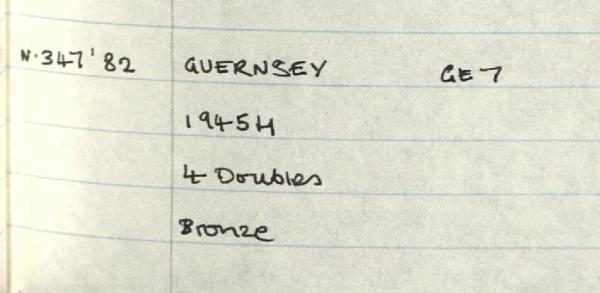 N.347'82 GUERNSEY GE7
1945H
4 Doubles
Bronze